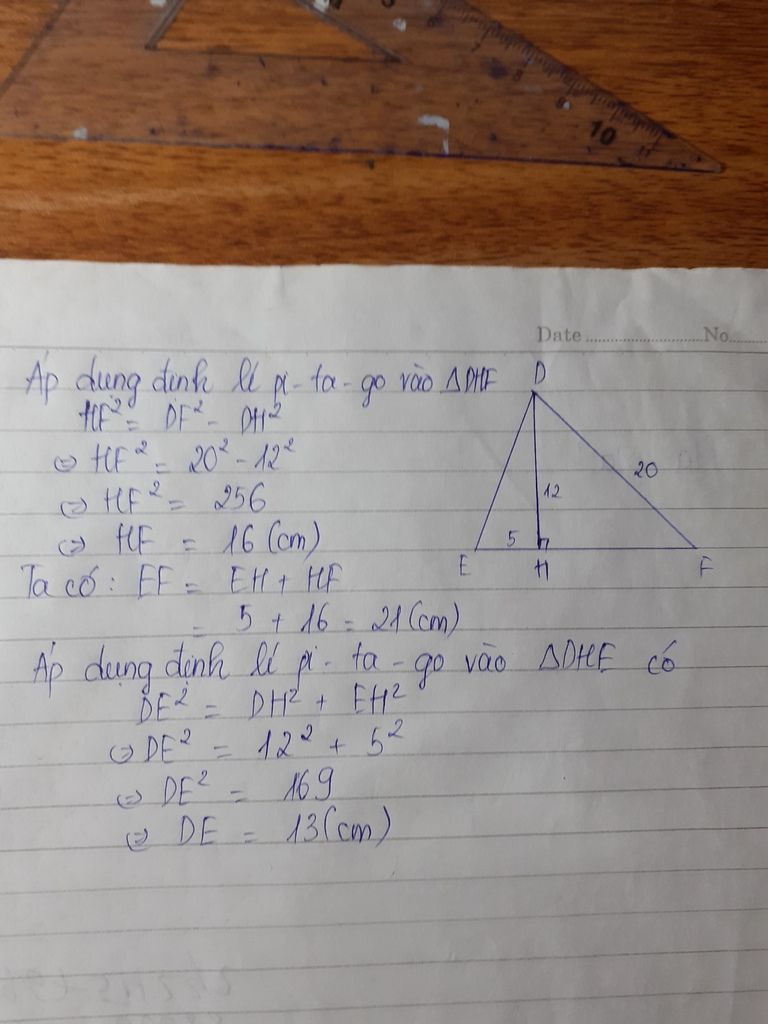 5
6
7
8
9
10
11
Date ........................ No.......
Áp dụng định lí pi-ta-go vào ΔDHF
HF² = DF² - DH²
⇔ HF² = 20² - 12²
⇔ HF² = 256
⇔ HF = 16 (cm)
Ta có: EF = EH + HF
= 5 + 16 = 21 (cm)
Áp dụng định lí pi-ta-go vào ΔDHE có
DE² = DH² + EH²
⇔ DE² = 12² + 5²
⇔ DE² = 169
⇔ DE = 13 (cm)
D
20
12
5
E H F